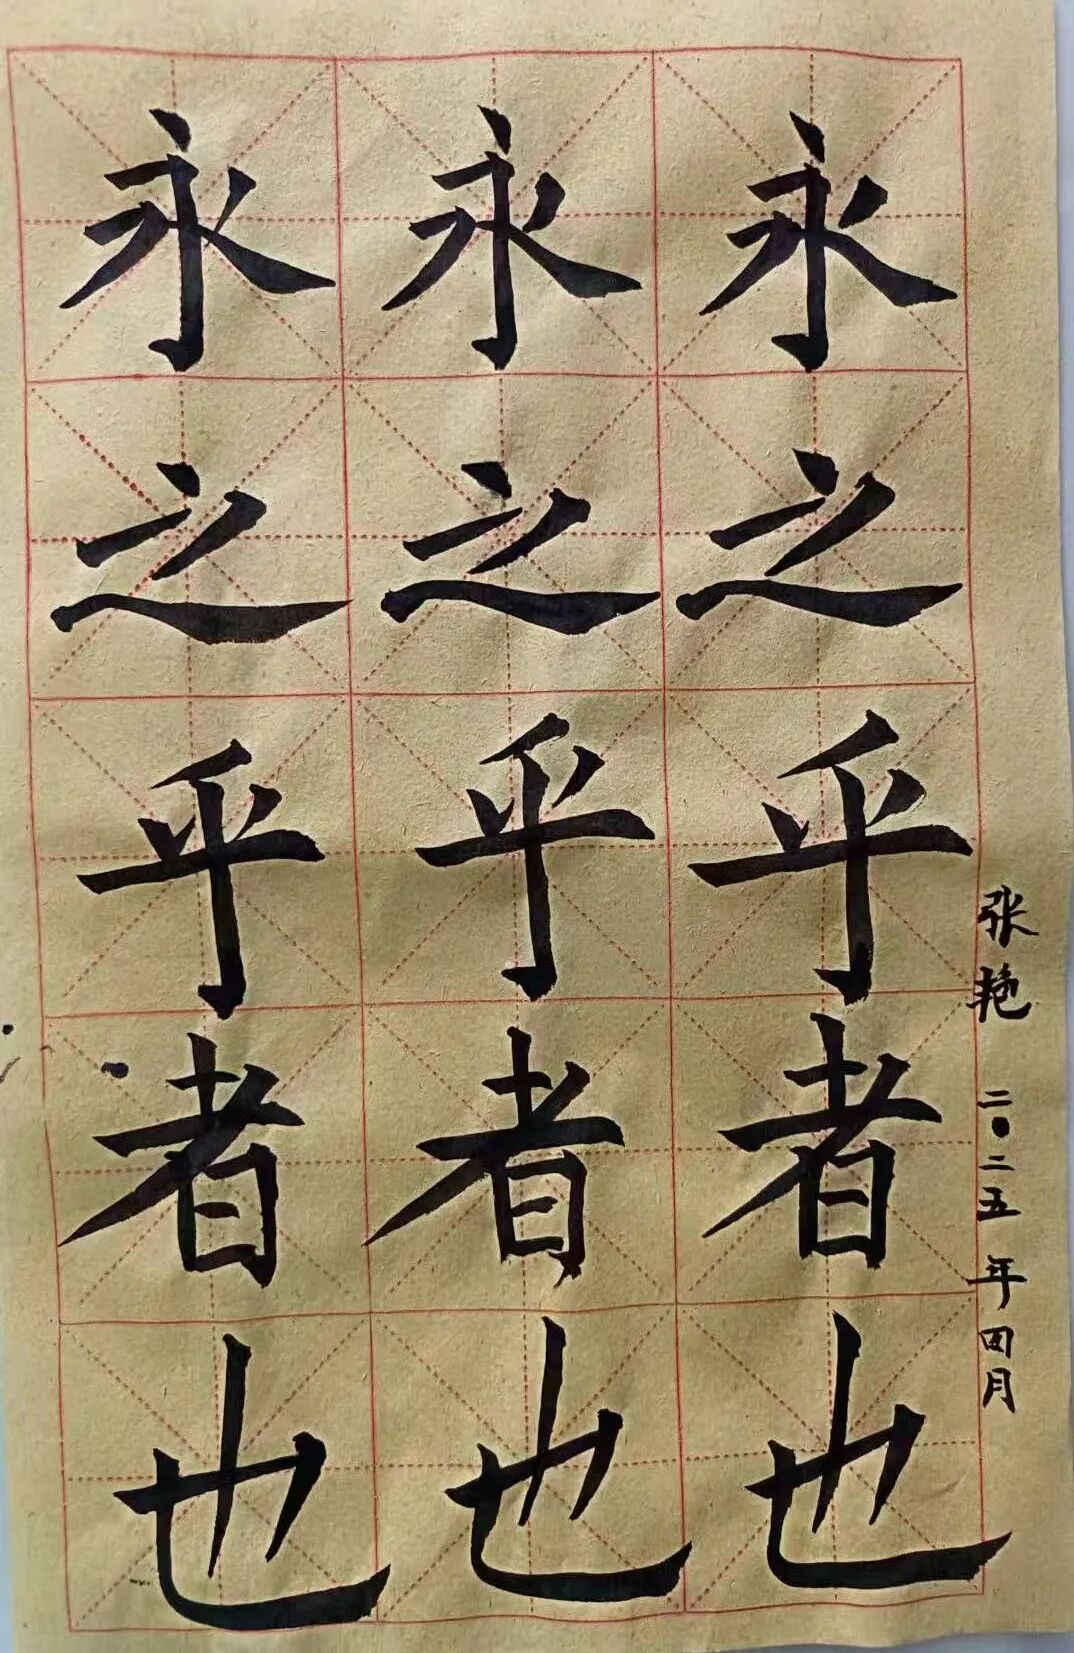 永之乎者也
永之乎者也
永之乎者也
张艳 二〇二五年四月